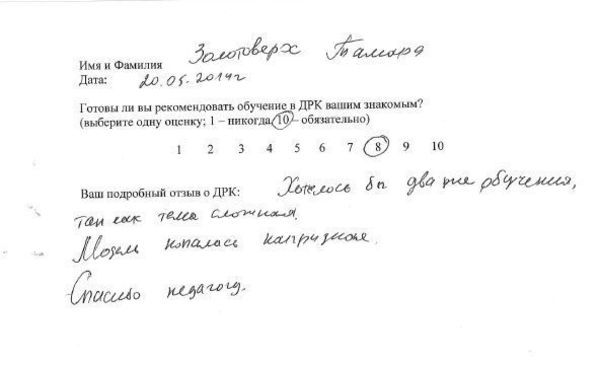 Имя и Фамилия Золотоверх Тамара
Дата: 20.05.2014г
Готовы ли вы рекомендовать обучение в ДРК вашим знакомым?
(выберите одну оценку; 1 – никогда, 10 – обязательно)
1 2 3 4 5 6 7 8 9 10
Ваш подробный отзыв о ДРК: Хотелось бы два дня обучения,
так как тема сложная.
Модель попалась капризная.
Спасибо педагогу.